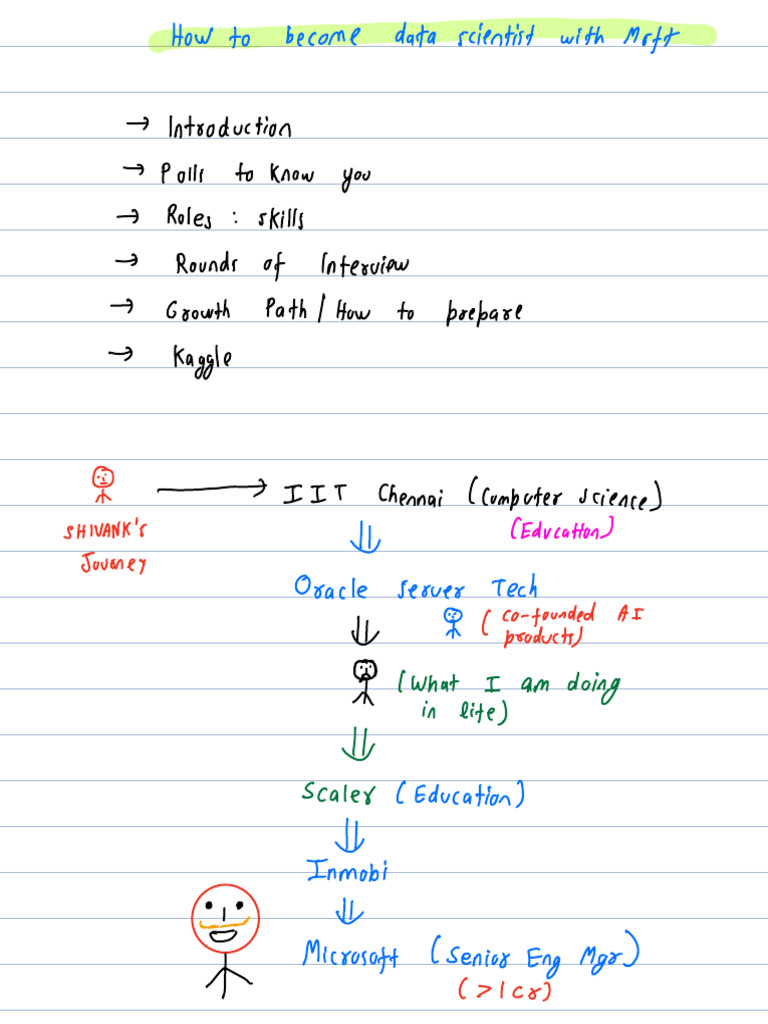 How to become data scientist with Msft
→ Introduction
→ Polls to know you
→ Roles : skills
→ Rounds of Interview
→ Growth Path / How to prepare
→ Kaggle
SHIVANK's
Journey
→ IIT Chennai (Computer science)
(Education)
Oracle server Tech
(co-founded AI
products)
(What I am doing
in life)
Scaler (Education)
Inmobi
Microsoft (Senior Eng Mgr)
(>1cr)